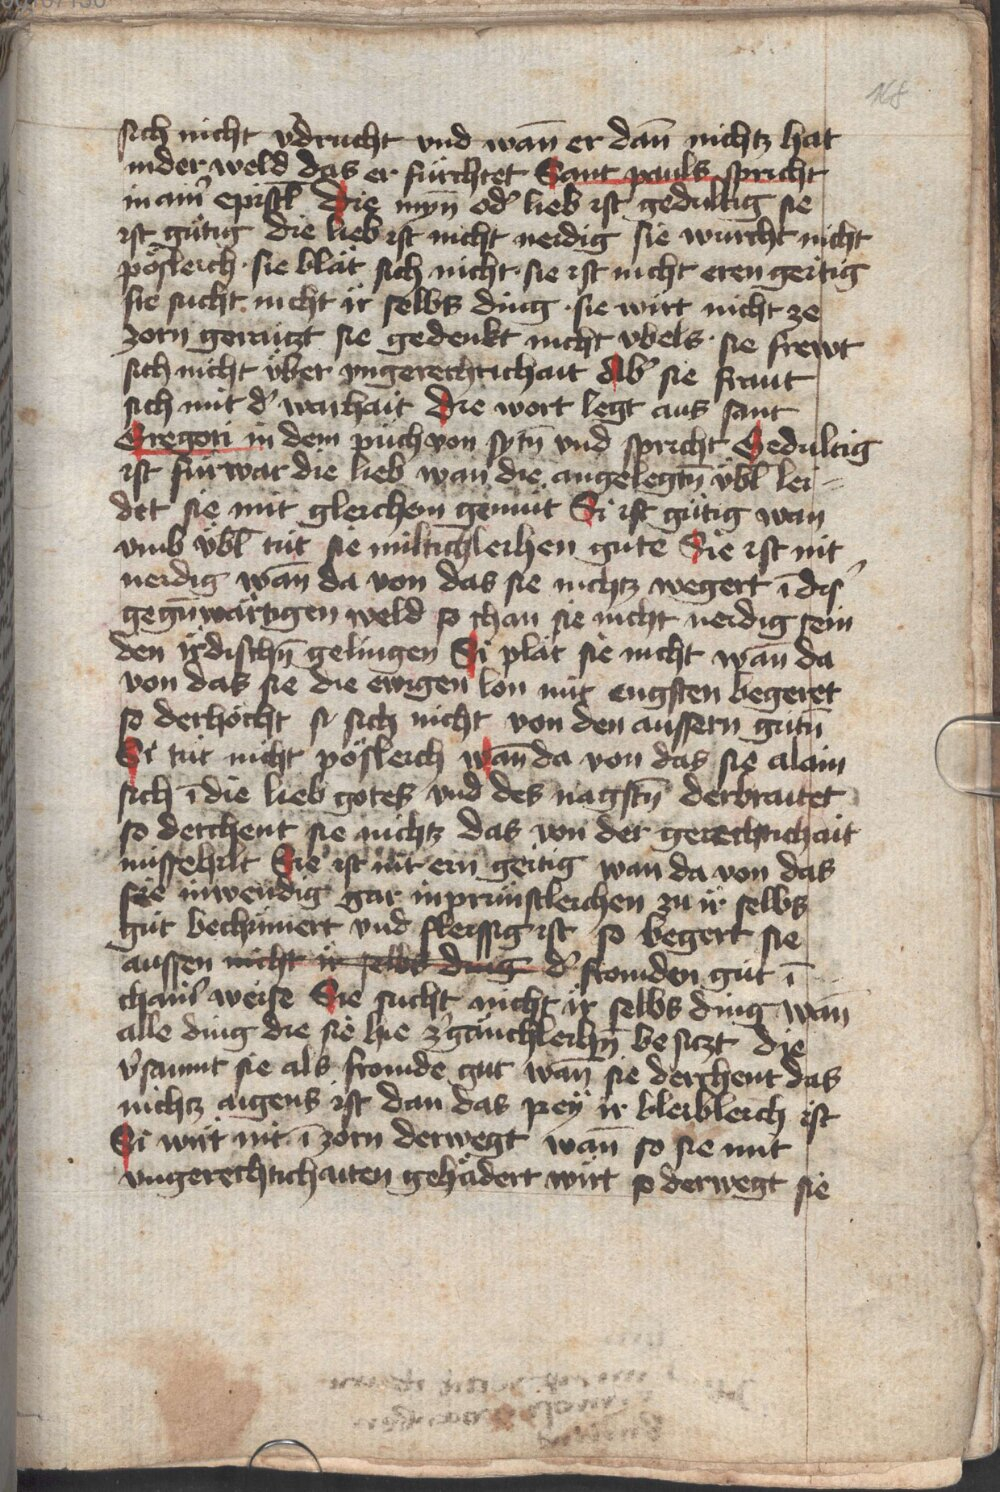 168
sich nicht vdrucht vnd wañ er dañ nichtz hat
in der weld das er fürchtet Sant pauls spricht
in ainˀ epistl Die myn̄ odˀ lieb ist gedultig sie
ist gütig die lieb ist nicht neidig sie würcht nicht
pösleich · sie blät sich nicht · sie ist nicht eren geitig
sie sucht nicht ir selbs ding · sie wirt nicht ze
zorn geraizt sie gedenkt nicht vbels · sie frewt
sich nicht über vngerechtichait abˀ sie fraut
sich mit dˀ warhait Die wort legt aus sant
Gregori in dem püch von sytn̄ vnd spricht Gedultig
ist für war die lieb wan die angelegtn̄ übl lei-
det sie mit gleichem gemüt Si ist gütig wan
vmb übl tüt sie miltichleihen gute Sie ist nit
neidig wan̄ da von das sie nichtz wegert ī disˀ
gegn̄wärtigen weld so chan sie nicht neidig sein
den irdischn̄ gelingen Si plät sie nicht wan̄ da
von das sie die ewigen lon mit engsten begeret
so derhöcht si sich nicht von den aussern gütn̄
Si tüt nicht pösleich wan̄ da von das sie alain
sich ī die lieb gotes vnd des nagstn̄ derbraitet
so derchent sie nichtz das von der gerechtichait
missehilt Sie ist nit ern geitig wan da von das
sie inwendig gar inprünstleichen zu ir selbs
güt bechümert vnd fleissig ist so begert sie
aussen nicht ir selbs ding dˀ fromden güt ī
chainˀ weise Sie sucht nicht ir selbs ding wan̄
alle ding die sie hie zˀgänchleihn̄ besiczt die
vˀsaumt sie als fromde gut wan̄ sie derchent das
nichtz aigens ist dan das pey ir bleibleich ist
Si wirt nit ī zorn derwegt wan̄ so sie mit
vngerechtichaiten gehädert wirt so derwegt sie